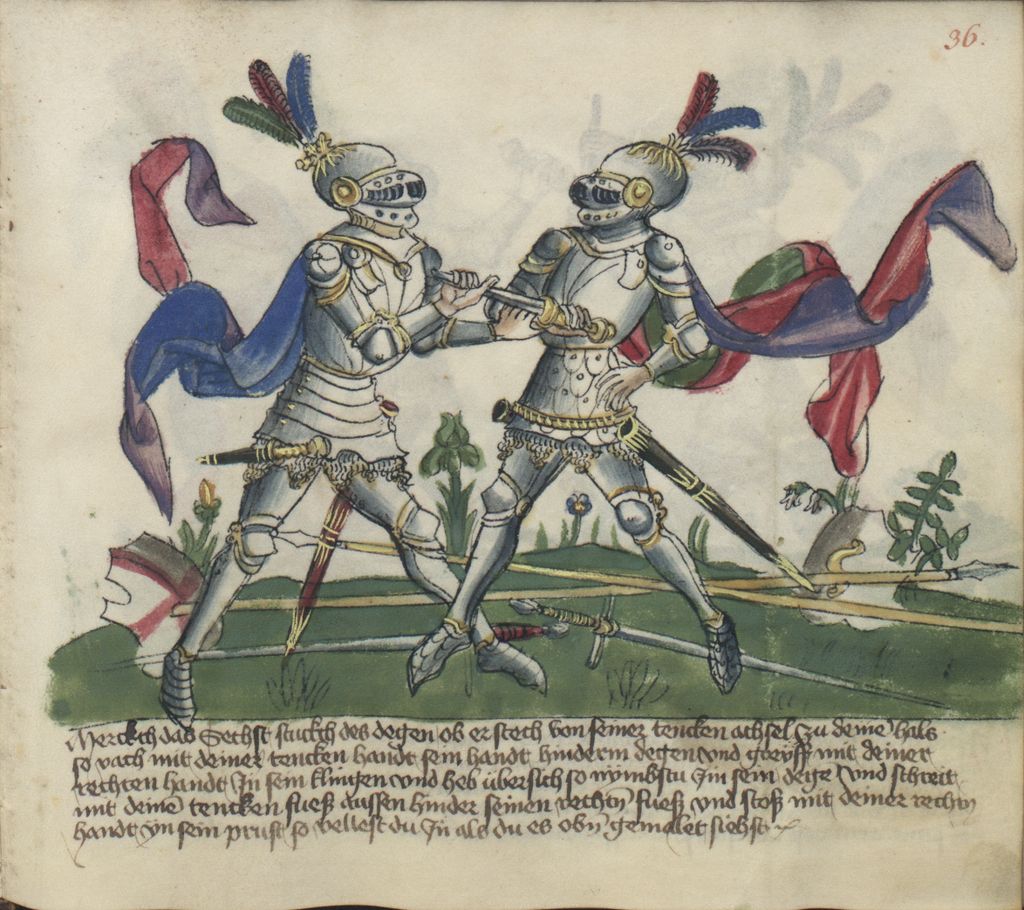 36.
Merckch das Sechst stuckch des degen ob er stech von seiner tencken achsel zu deinē hals
so vach mit deiner tencken handt sein handt hinderm degen vnd greyff mit deiner
rechten handt In sein klingen vnd heb übersich so nymbstu Im sein dege vnd schreit
mit deinē tencken fueß aussen hinder seinen rechtn̄ fueß vnd stoß mit deiner rechtn̄
handt yn sein prust so vellest du In als du es obn̄ gemalet siehst